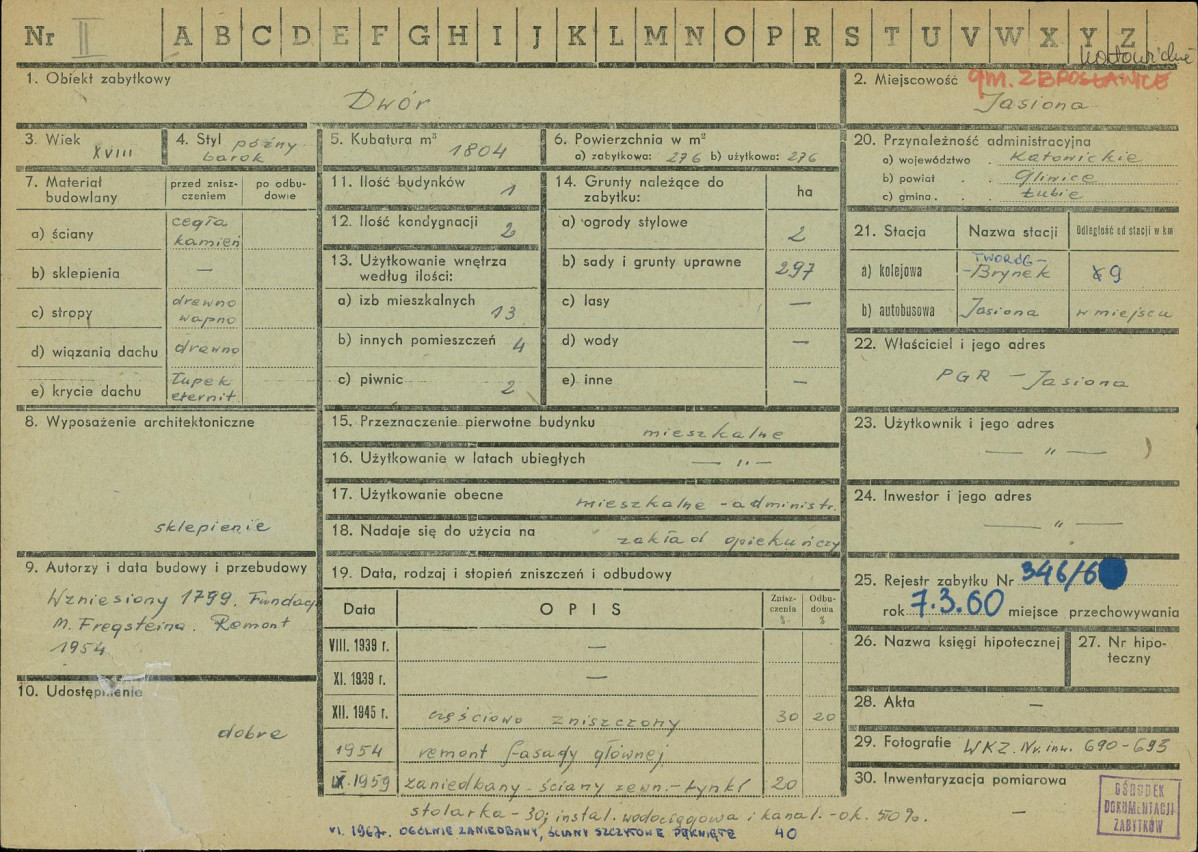 Nr II A B C D E F G H I J K L M N O P R S T U V W X Y Z
1. Obiekt zabytkowy
Dwór
3. Wiek XVIII
4. Styl późny
barok
5. Kubatura m³ 1804
6. Powierzchnia w m²
a) zabytkowa: 276 b) użytkowa: 276
7. Materiał
budowlany
przed znisz-
czeniem
po odbu-
dowie
a) ściany cegła
kamień
b) sklepienia —
c) stropy drewno
wapno
d) wiązania dachu drewno
e) krycie dachu łupek
eternit
8. Wyposażenie architektoniczne
sklepienie
9. Autorzy i data budowy i przebudowy
Wzniesiony 1799. Fundac.
M. Fregsteina. Remont
1954
10. Udostępnienie
dobre
11. Ilość budynków 1
12. Ilość kondygnacji 2
13. Użytkowanie wnętrza
według ilości:
a) izb mieszkalnych 13
b) innych pomieszczeń 4
c) piwnic 2
14. Grunty należące do
zabytku:
ha
a) ogrody stylowe 2
b) sady i grunty uprawne 297
c) lasy —
d) wody —
e) inne —
15. Przeznaczenie pierwotne budynku mieszkalne
16. Użytkowanie w latach ubiegłych — „ —
17. Użytkowanie obecne mieszkalne - administr.
18. Nadaje się do użycia na zakład opiekuńczy
19. Data, rodzaj i stopień zniszczeń i odbudowy
Data
OPIS
Znisz-
czenia
%
Odbu-
dowa
%
VIII. 1939 r. —
XI. 1939 r. —
XII. 1945 r. częściowo zniszczony 30 20
1954 remont fasady głównej
IX. 1959 zaniedbany - ściany zewn. - tynki 20
stolarka - 30; instal. wodociągowa i kanal. - ok. 50%.
VI. 1967r. OGÓLNIE ZANIEDBANY, ŚCIANY SZCZYTOWE PĘKNIĘTE 40
2. Miejscowość gm. ZBROSŁAWICE
Jasiona
20. Przynależność administracyjna
a) województwo Katowickie
b) powiat Gliwice
c) gmina Łubie
21. Stacja
Nazwa stacji
Odległość od stacji w km
a) kolejowa TWORÓG -
- Brynek 9
b) autobusowa Jasiona w miejscu
22. Właściciel i jego adres
PGR - Jasiona
23. Użytkownik i jego adres
— „ —
24. Inwestor i jego adres
— „ —
25. Rejestr zabytku Nr 346/6
rok 7.3.60 miejsce przechowywania
26. Nazwa księgi hipotecznej
27. Nr hipo-
teczny
28. Akta —
29. Fotografie WKZ. Nr. inw. 690-693
30. Inwentaryzacja pomiarowa
—
OŚRODEK
DOKUMENTACJI
ZABYTKÓW